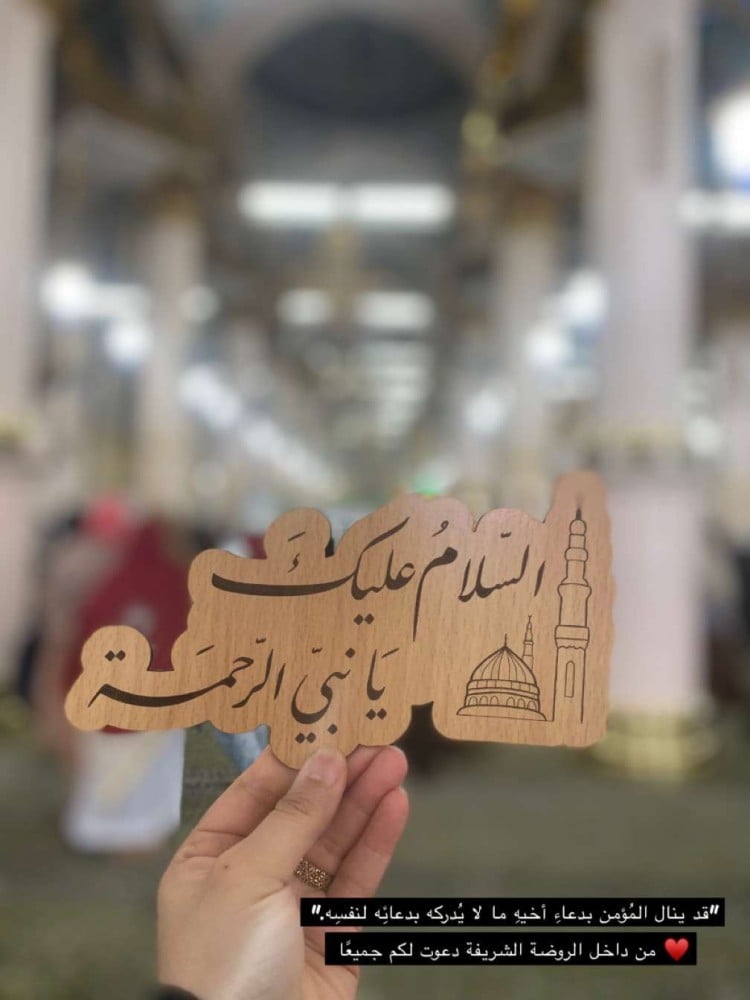 السّلامُ عليكَ
يَا نبيّ الرّحمَة
"قد ينال المُؤمن بدعاءِ أخيهِ ما لا يُدركه بدعائِه لنفسِه."
❤️ من داخل الروضة الشريفة دعوت لكم جميعًا